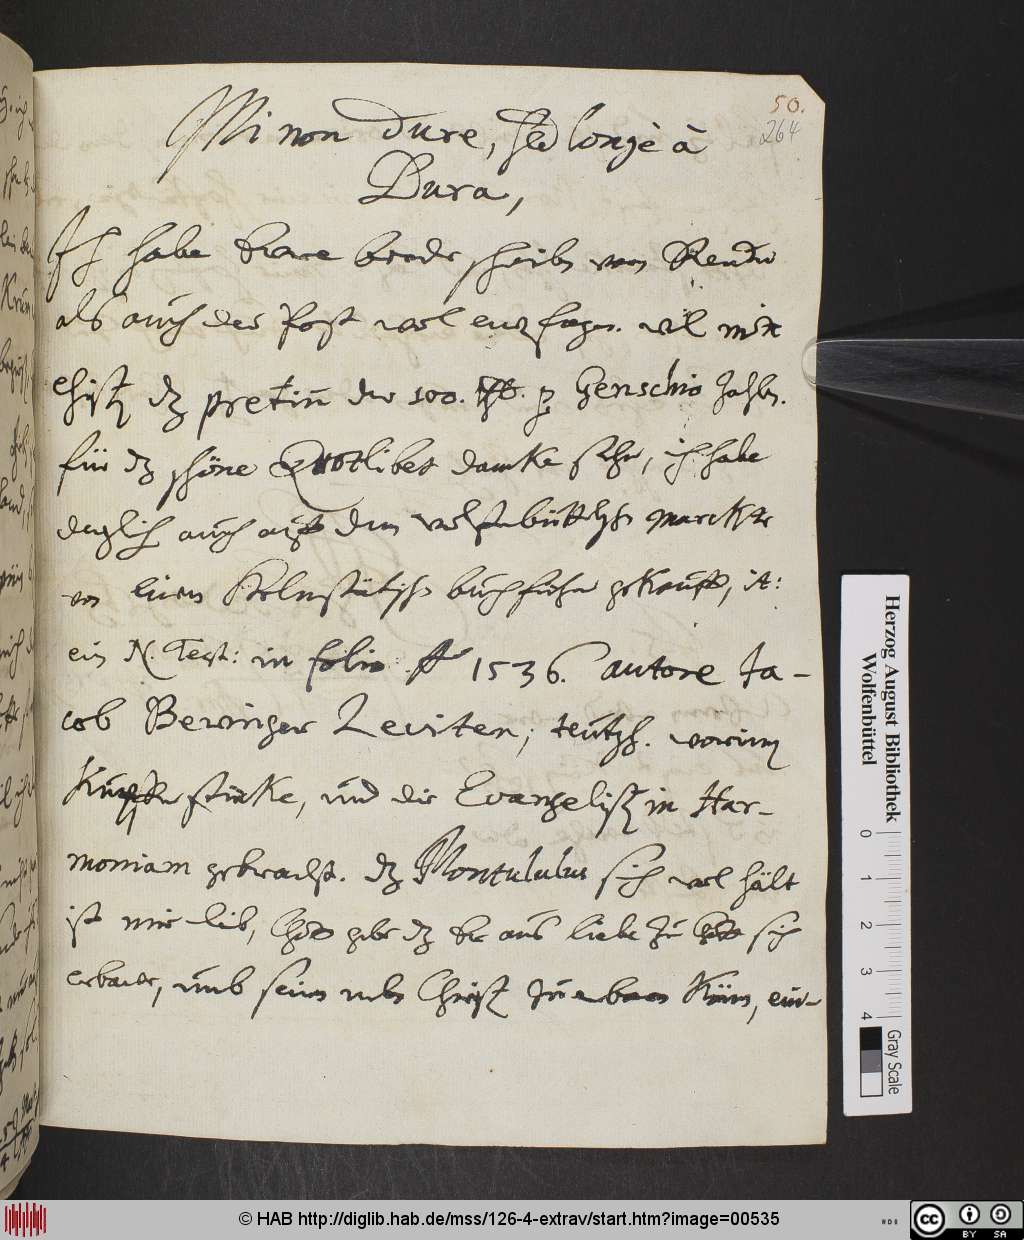 50.
264
Mi non Dure, sed longè à
Dura,
Ich habe Eware beede schreiben vom
als auch der Post wol empfangen. wil mitt
ehist dz pretiũ der 100. p Henschio zahln.
für dz schöne Quotlibet dancke sehr, ich habe
auch auff dem wolfenbüttlschen marckte
von einen Helmstätisch buchführer gekaufft, it:
ein N. Test: in folio 1536. autore Ja-
cob Beringer Leviten, teutsch. worinn
Kupfferstücke, und die Evangelisten in Har-
moniam gebracht. dz sich wol hält
ist mir lieb, Gott gebe dz Er aus liebe zu Gott sich
erbawe, umb seinen neben Christ zu erbawen
Herzog August Bibliothek
Wolfenbüttel
0 1 2 3 4
Gray Scale
© HAB http://diglib.hab.de/mss/126-4-extrav/start.htm?image=00535
cc BY SA